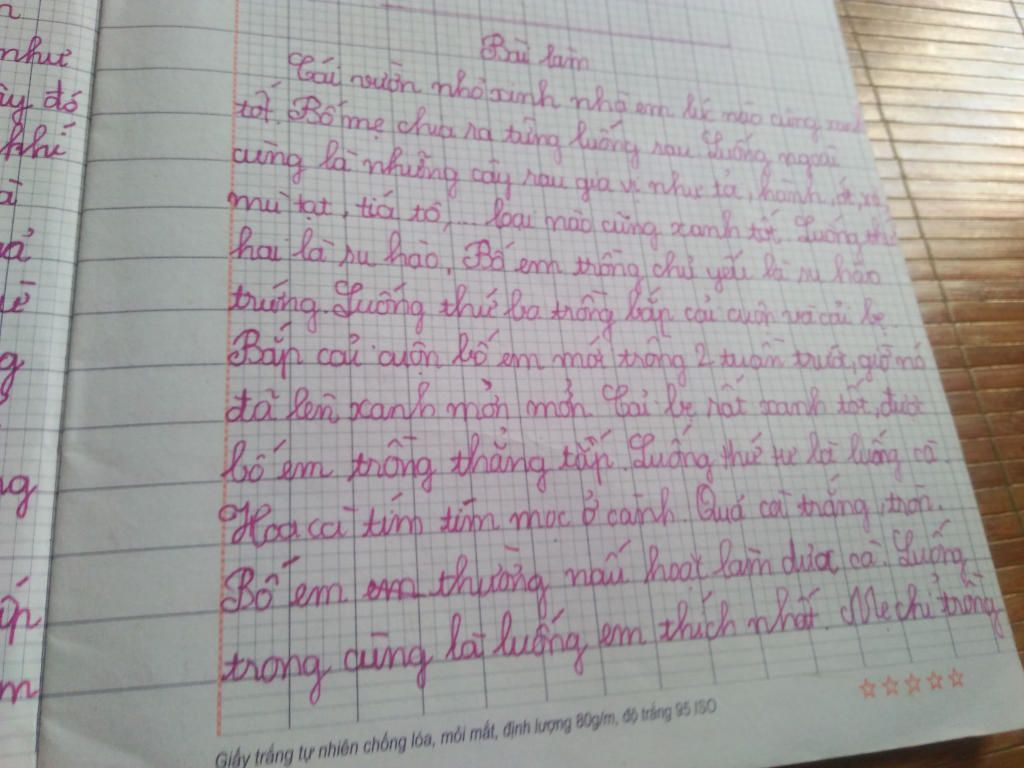 n
như
ày đó
khi
à
uả
uề
g
ng
ín
m
Bài làm
Cái vườn nhỏ xinh nhà em lúc nào cũng xanh
tốt. Bố mẹ chưa ra từng luống rau. Luống ngoài
cùng là những cây rau gia vị như tỏ, hành, ớt, xả,
mù tạt, tiá tô,... loại nào cũng xanh tốt. Luống thứ
hai là su hào. Bố em trồng chủ yếu là su hào
trứng. Luống thứ ba trồng bắp cải cuộn và cải bẹ.
Bắp cải cuộn bố em mới trồng 2 tuần trước, giờ nó
đã lên xanh mởn mởn. Cải bẹ rất xanh tốt, được
bố em trồng thẳng tắp. Luống thứ tư là luống cà.
Hoa cà tím tím mọc ở cành. Quả cà trắng, tròn.
Bố em em thường nấu hoặt làm dưa cà. Luống
trong cùng là luống em thích nhất. Mẹ chỉ trồng
Giấy trắng tự nhiên chống lóa, mỏi mắt, định lượng 80g/m, độ trắng 95 ISO